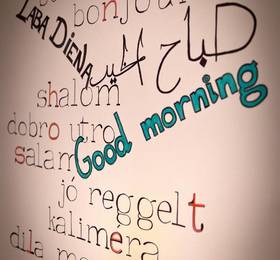 bonjour
LABA DIENA
صباح الخير
shalom
dobro utro
Good morning
salam
jó reggelt
kaliméra
dila